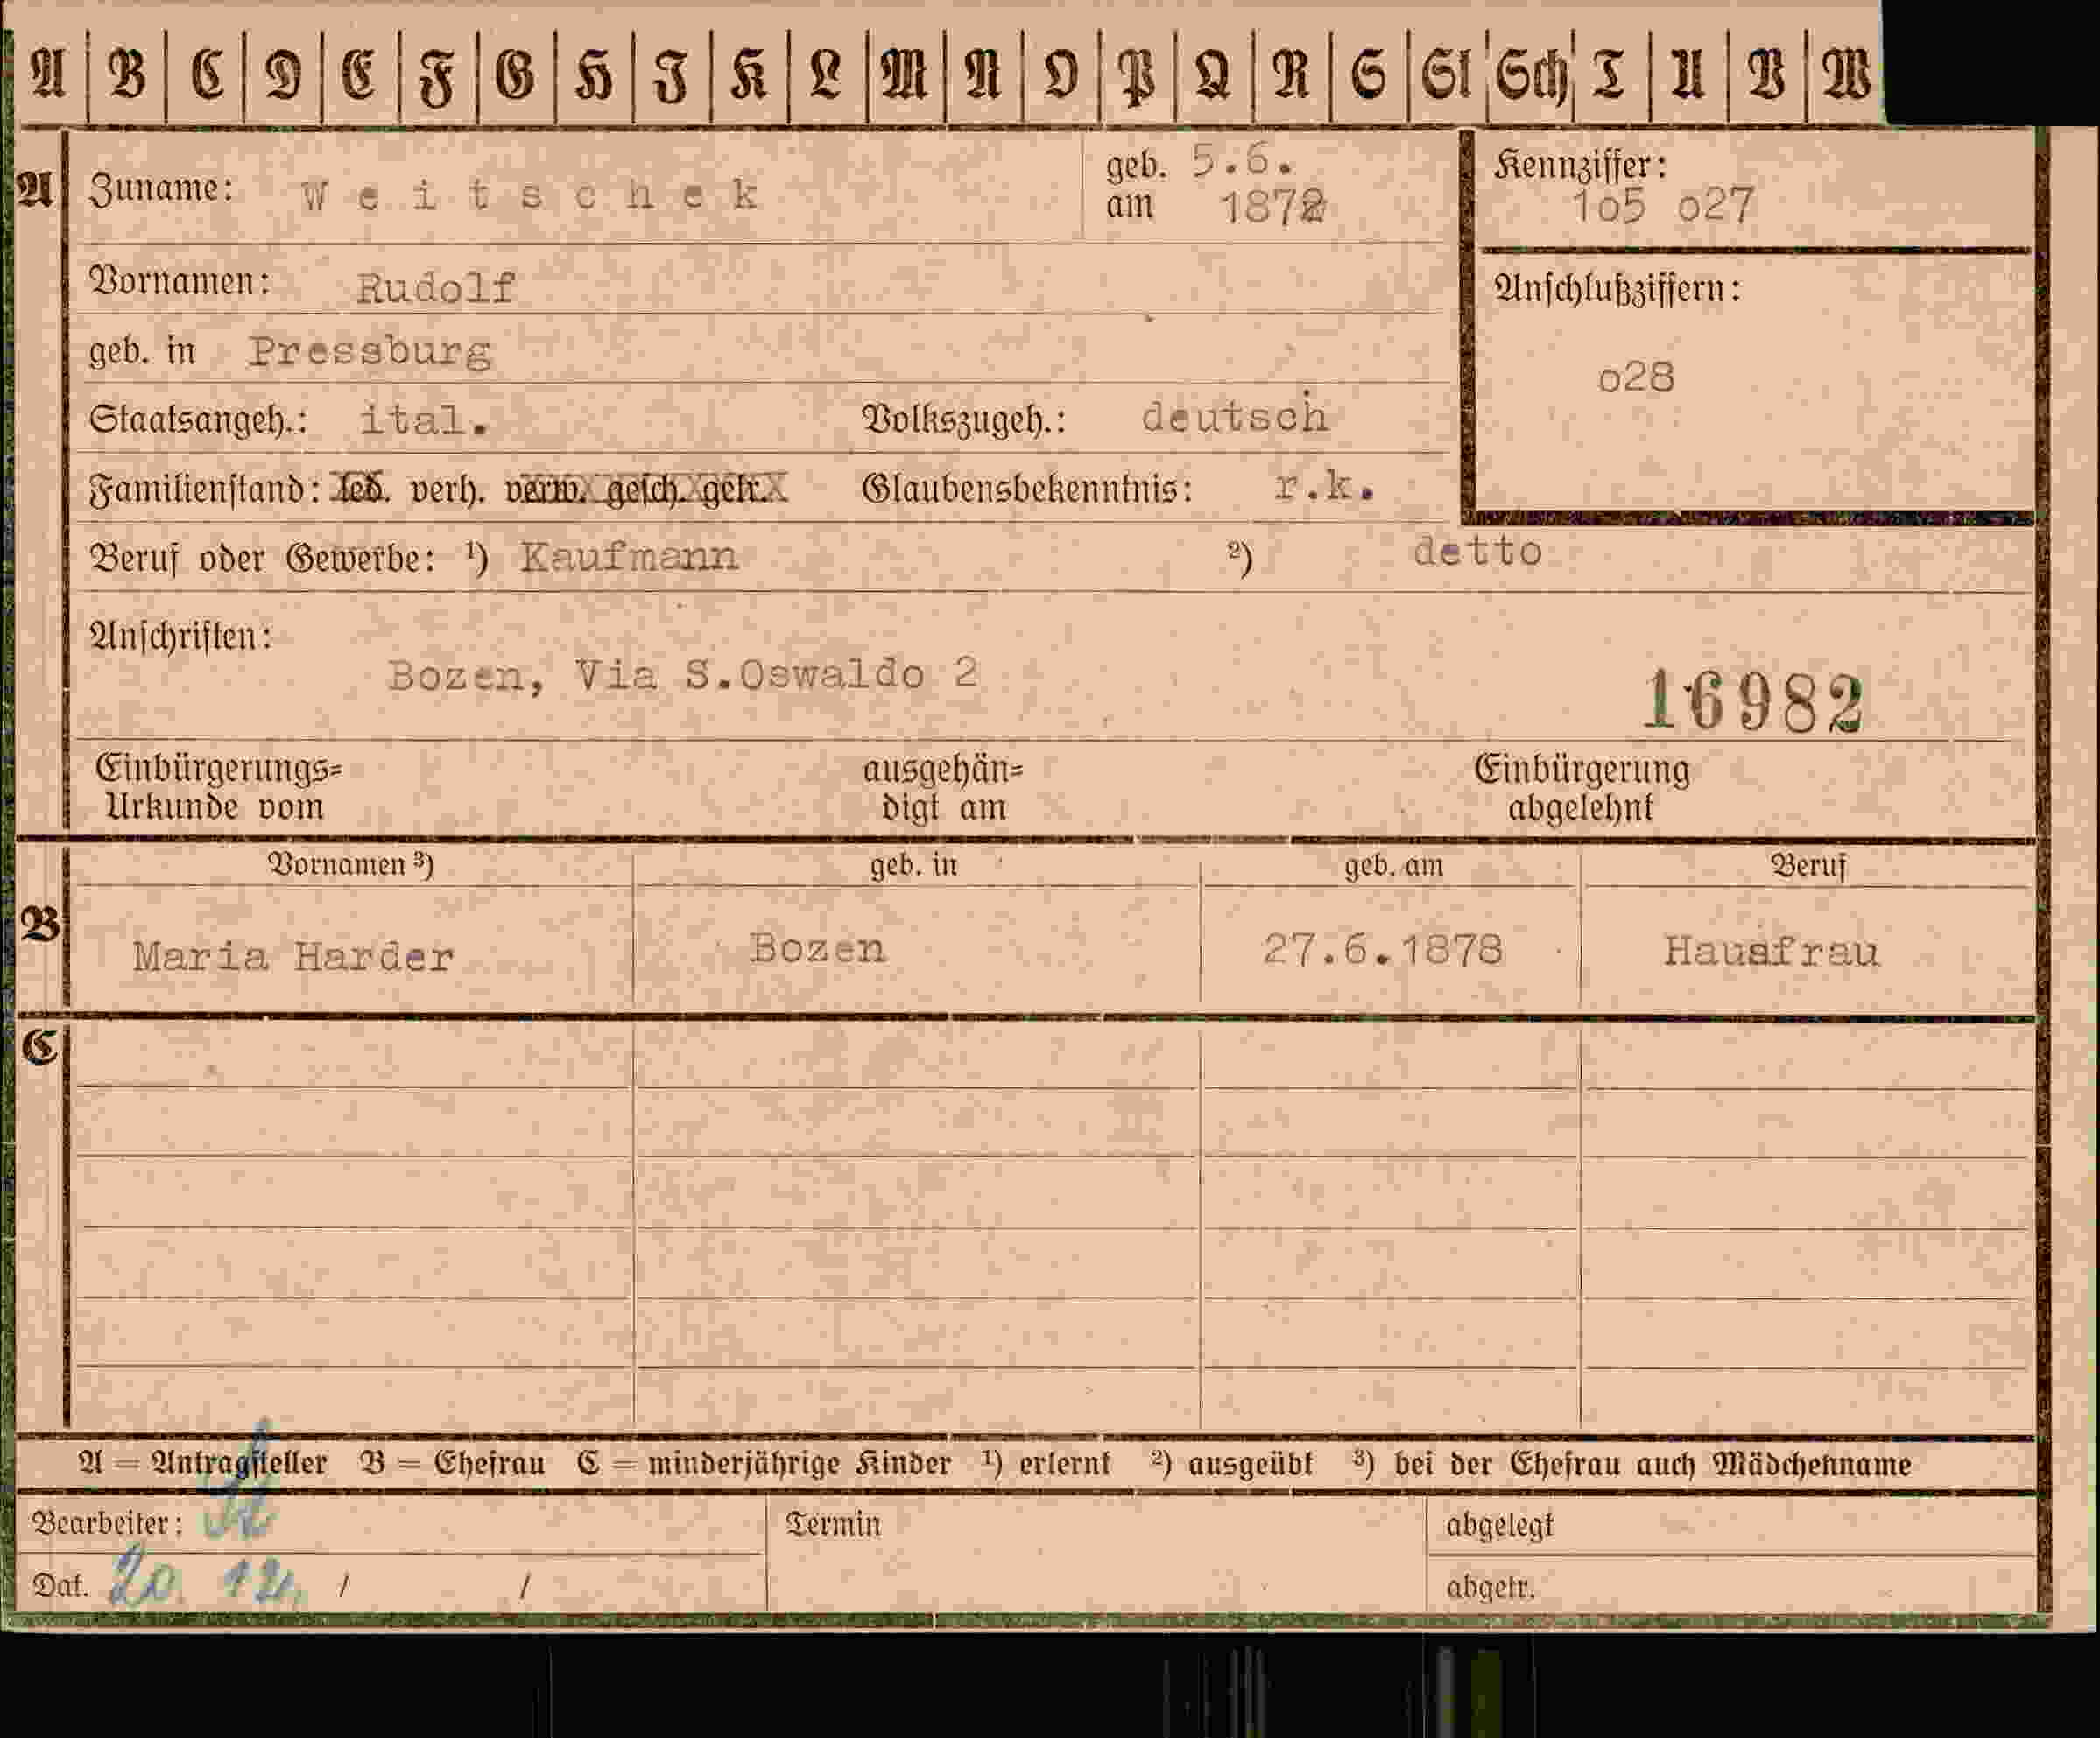 A B C D E F G H J K L M N O P Q R S St Sch T U V W
A Zuname: Weitschek geb. am 5.6. 1872
Kennziffer: 1o5 o27
Vornamen: Rudolf
Anschlußziffern: o28
geb. in Pressburg
Staatsangeh.: ital. Volkszugeh.: deutsch
Familienstand: led. verh. verw. gesch. getr. Glaubensbekenntnis: r.k.
Beruf oder Gewerbe: ¹) Kaufmann ²) detto
Anschriften:
Bozen, Via S.Oswaldo 2
16982
Einbürgerungs-Urkunde vom ausgehändigt am Einbürgerung abgelehnt
Vornamen ³) geb. in geb. am Beruf
B Maria Harder Bozen 27.6.1878 Hausfrau
C
A = Antragsteller B = Ehefrau C = minderjährige Kinder ¹) erlernt ²) ausgeübt ³) bei der Ehefrau auch Mädchenname
Bearbeiter: Termin abgelegt
Dat. 20. 12. / / abgetr.